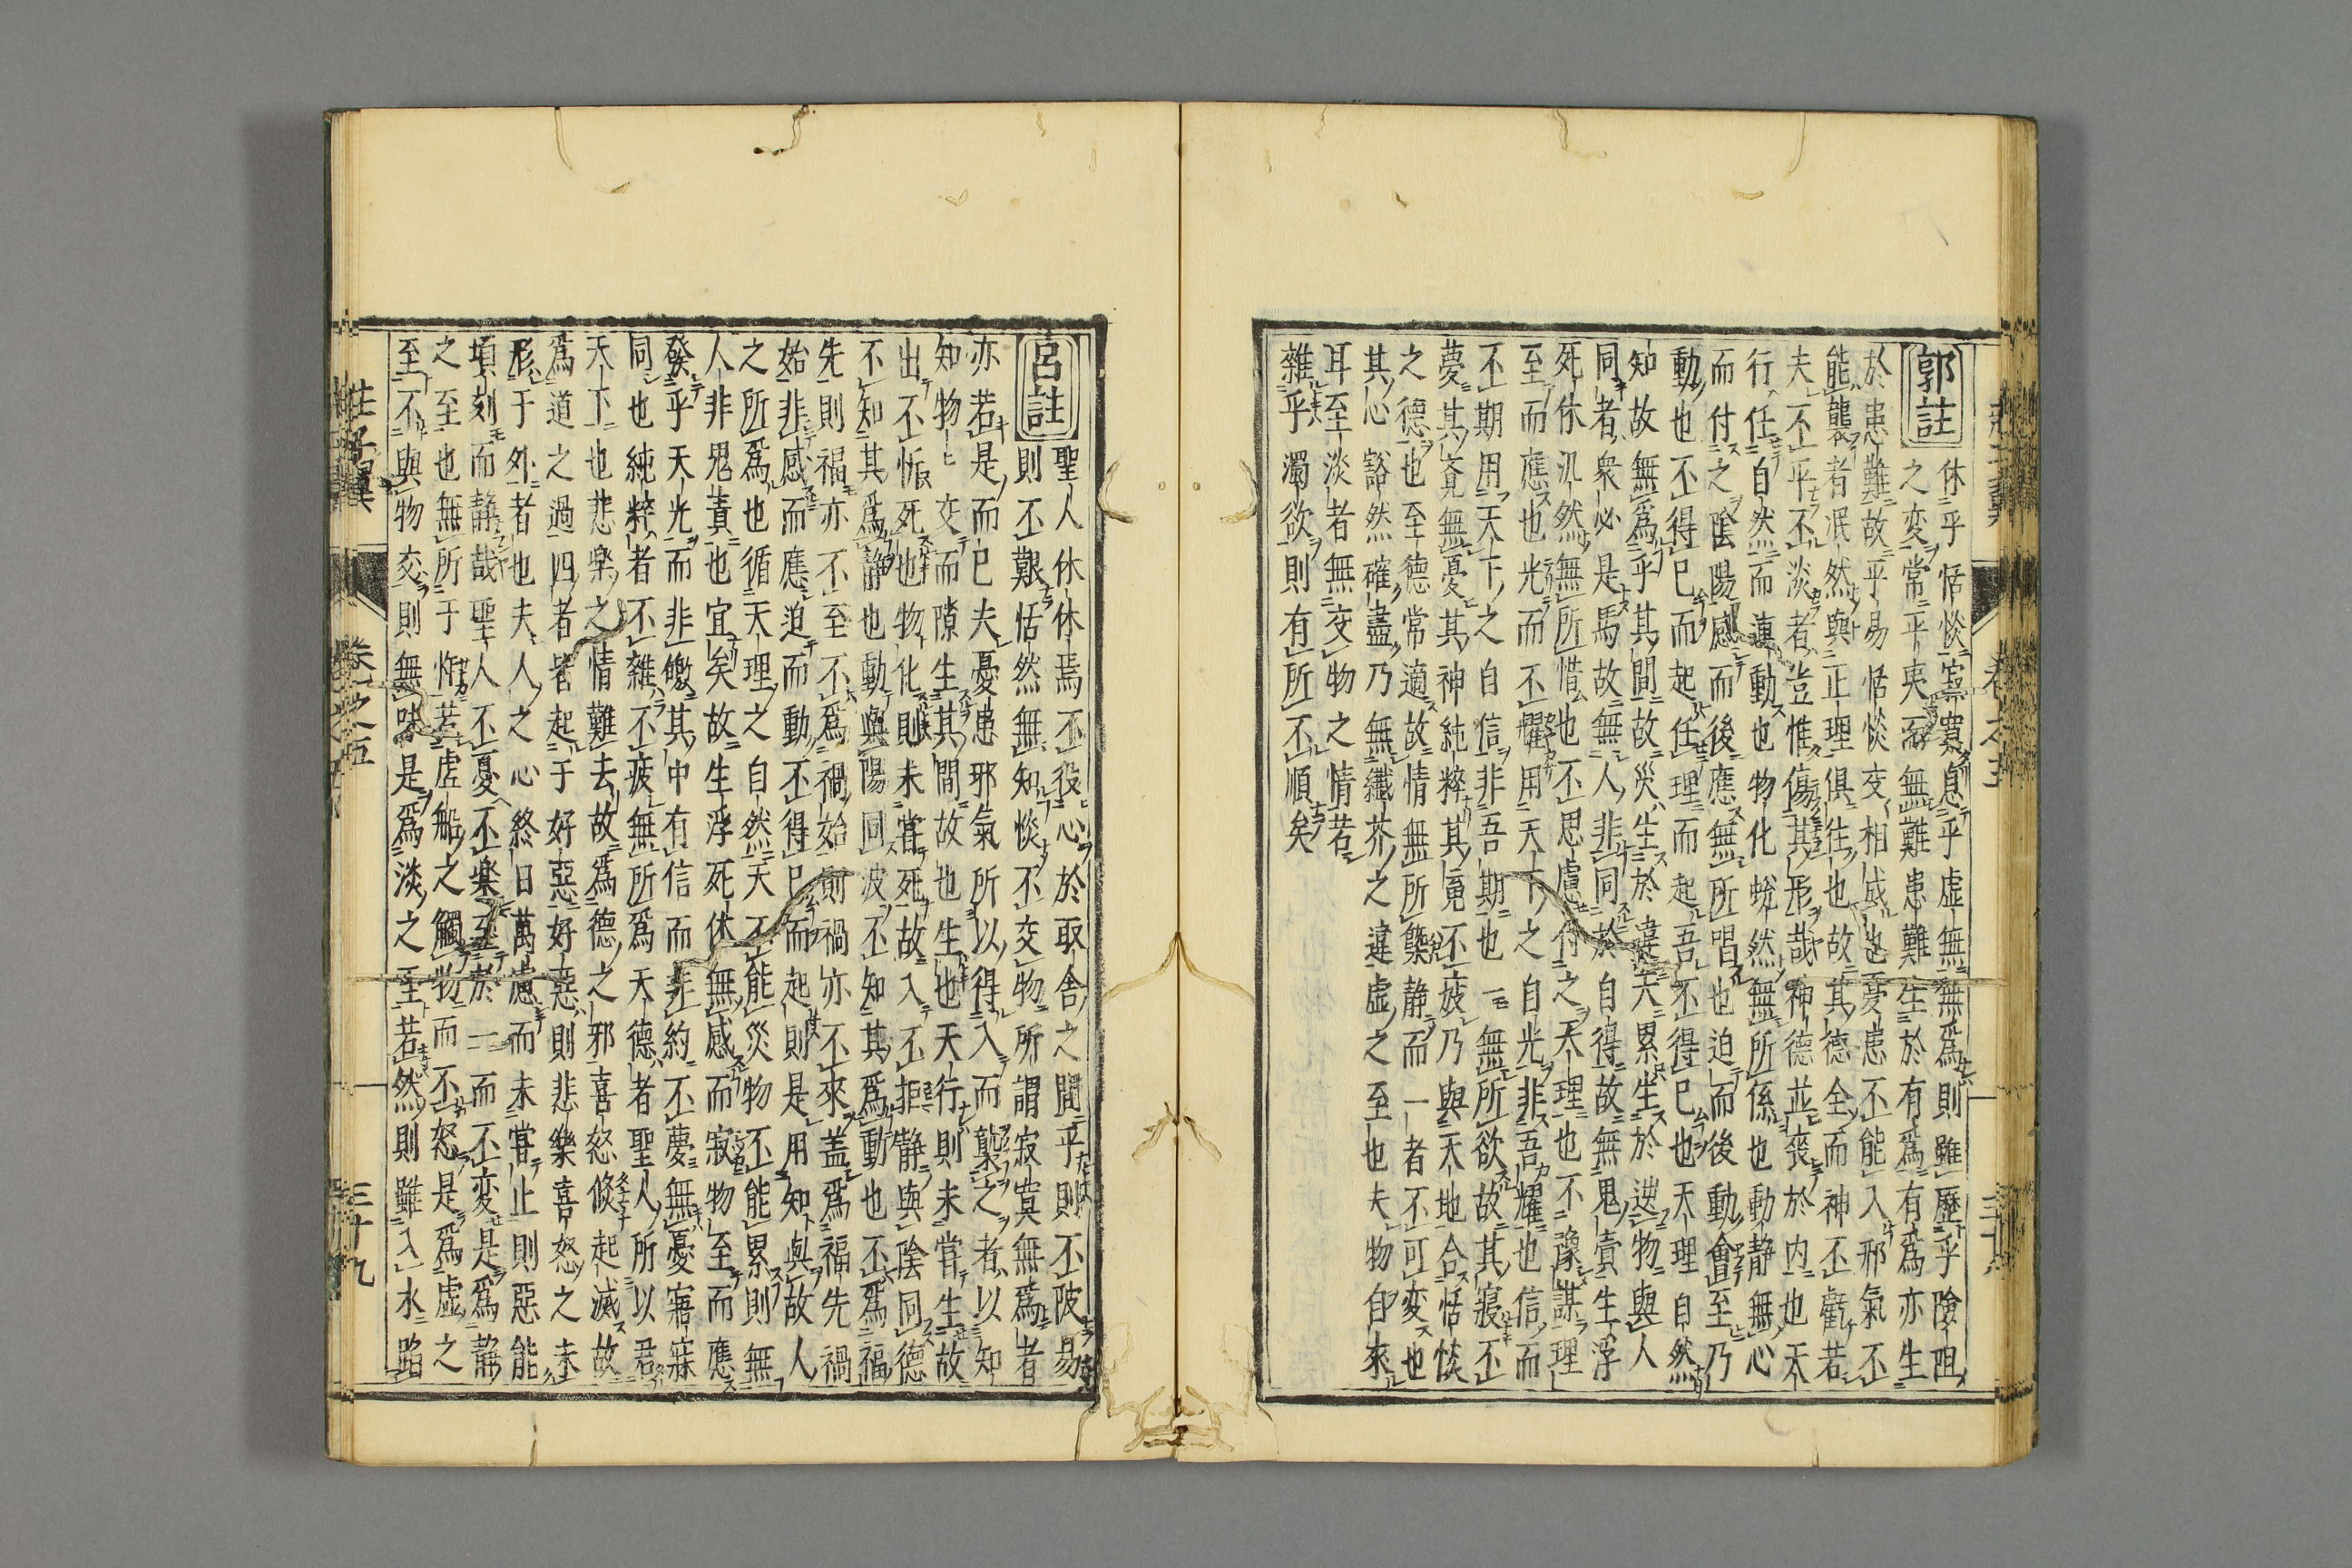 郭註
休乎恬惔寂寞息乎虛無無爲則雖歷乎險阻
之変常平夷而無難患難生於有爲有爲亦生
於患難故平易恬惔交相成也憂患不能入邪氣不
能襲者泯然與正理俱往也故其德全而神不虧若
夫不平不淡者豈惟傷其形哉神德並喪於内也天
行任自然而運動也物化蛻然無所係也動静無心
而付之陰陽感而後應無所唱也迫而後動會至乃
動也不得已而起任理而起吾不得已也天理自然
知故無爲乎其間故災生於違天累生於逆物與人
同者衆必是焉故無人非同於自得故無鬼責生浮
死休汎然無所惜也不思慮付之天理也不豫謀理
至而應也光而不耀用天下之自光非吾耀也信而
不期用天下之自信非吾期也一無所欲故其寢不
夢其覺無憂其神純粹其魂不疲乃與天地合恬惔
之德也至德常適故情無所槩静而一者不可変也
其心豁然確盡乃無纖芥之違虛之至也夫物自來
耳至淡者無交物之情若
雜乎濁欲則有所不順矣
呂註
聖人休休焉不役心於取舍之間乎則不陂易
則不艱恬然無知惔不交物所謂寂寞無爲者
亦若是而已夫憂患邪氣所以得入而襲之者以知
知物交而隙生其間故也生也天行則未嘗生故
出不悕死也物化則未嘗死故入不拒静與陰同德
不知其爲静也動與陽同波不知其爲動也不爲福
先則福亦不至不爲禍始則禍亦不來盖爲福先禍
始非感而應迫而動不得已而起則是用知與故人
之所爲也循天理之自然天不能災物不能累則無
人非鬼責也宜矣故生浮死休無感而寂物至而應
發乎天光而非皦其中有信而非約不夢無憂寤寐
同也純粹者不雜不疲無所爲天德者聖人所以君
天下也悲樂之情難去故爲德之邪喜怒倏起滅故
爲道之過四者皆起于好惡好惡則悲樂喜怒之主
形于外者也夫人之心終日萬慮而未嘗止則惡能
頃刻而静哉聖人不憂不樂至於一而不変是爲静
之至也無所于忤若虛船之觸物而不怒是爲虛之
至不與物交則無味是爲淡之至若然則雖入水蹈
莊子翼 卷之五 三十九